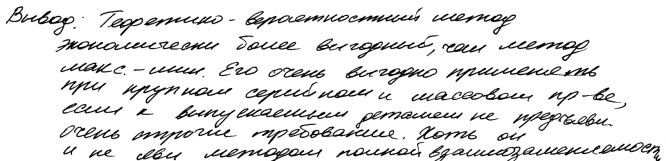 Вывод: Теоретико-вероятностный метод
экономически более выгодный, чем метод
макс.-мин. Его очень выгодно применять
при крупном серийном и массовом пр-ве,
если к выпускаемым деталям не предъявл.
очень строгие требования. Хоть он
и не явл методом полной взаимозаменяемост